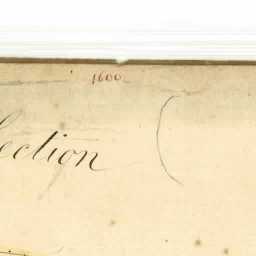 1600
lection (